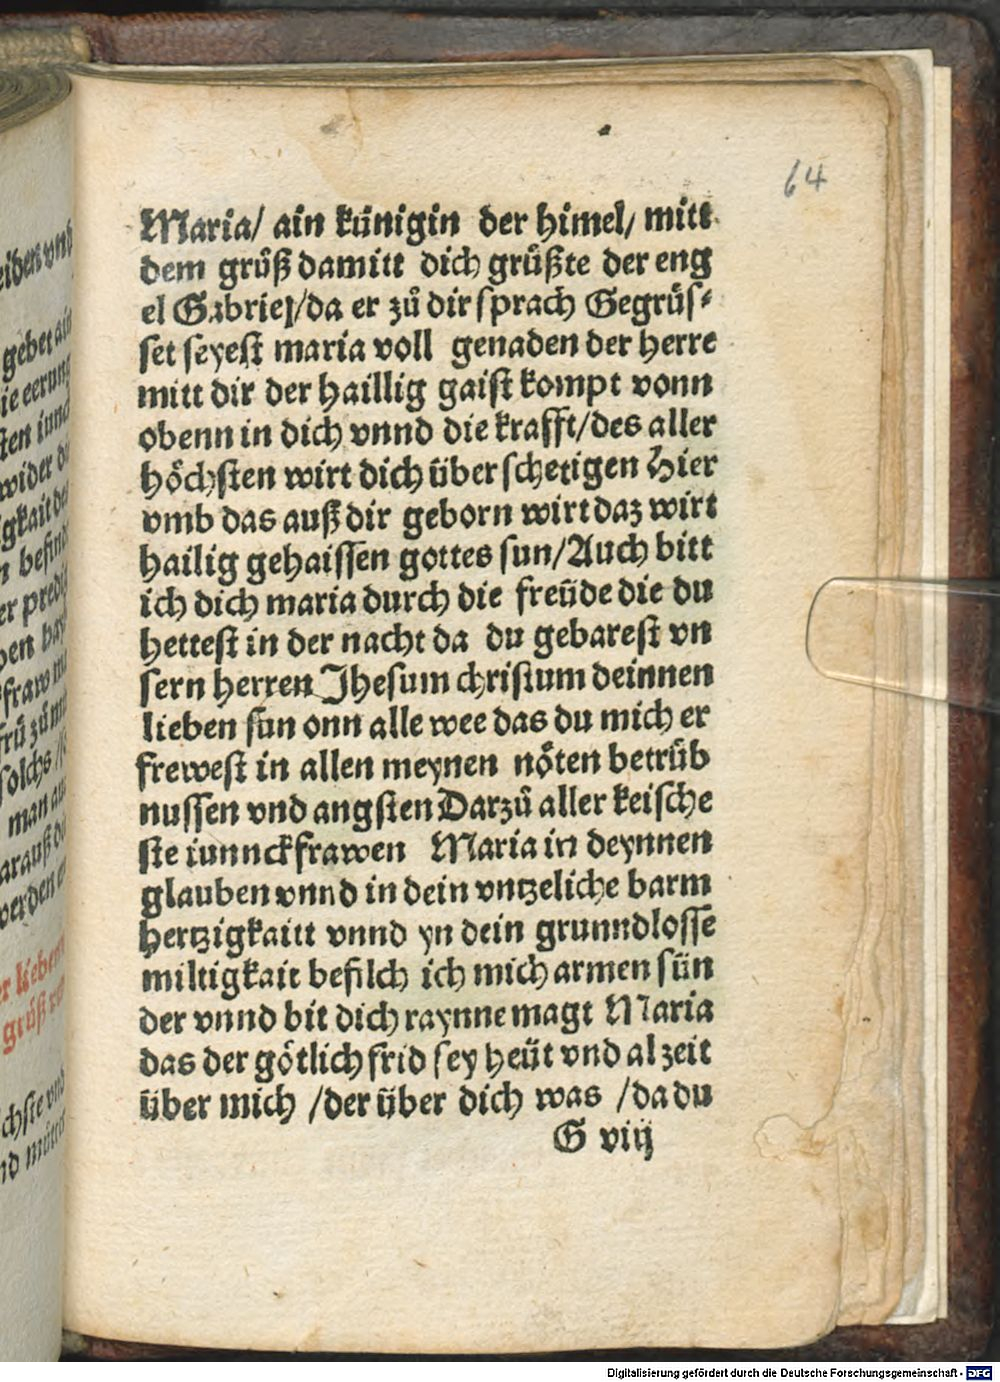 64
Maria/ ain künigin der himel/ mitt
dem grůß damitt dich grůßte der eng
el Gabriel/da er zů dir sprach Gegrüs⸗
set seyest maria voll genaden der herre
mitt dir der haillig gaist kompt vonn
obenn in dich vnnd die krafft/des aller
höchsten wirt dich über schetigen Hier
vmb das auß dir geborn wirt daz wirt
hailig gehaissen gottes sun/Auch bitt
ich dich maria durch die freüde die du
hettest in der nacht da du gebarest vn
sern herren Jhesum christum deinnen
lieben sun onn alle wee das du mich er
frewest in allen meynen nöten betrüb
nussen vnd angsten Darzů aller keische
ste iunnckfrawen Maria in deynnen
glauben vnnd in dein vntzeliche barm
hertzigkaitt vnnd yn dein grunndlosse
miltigkait befilch ich mich armen sün
der vnnd bit dich raynne magt Maria
das der götlich frid sey heüt vnd alzeit
über mich /der über dich was /da du
G viij
eiben vnd
gebet ain
ie eerung
wider
n befind
er predig
solchs
man
arauß
werden
Digitalisierung gefördert durch die Deutsche Forschungsgemeinschaft - DFG